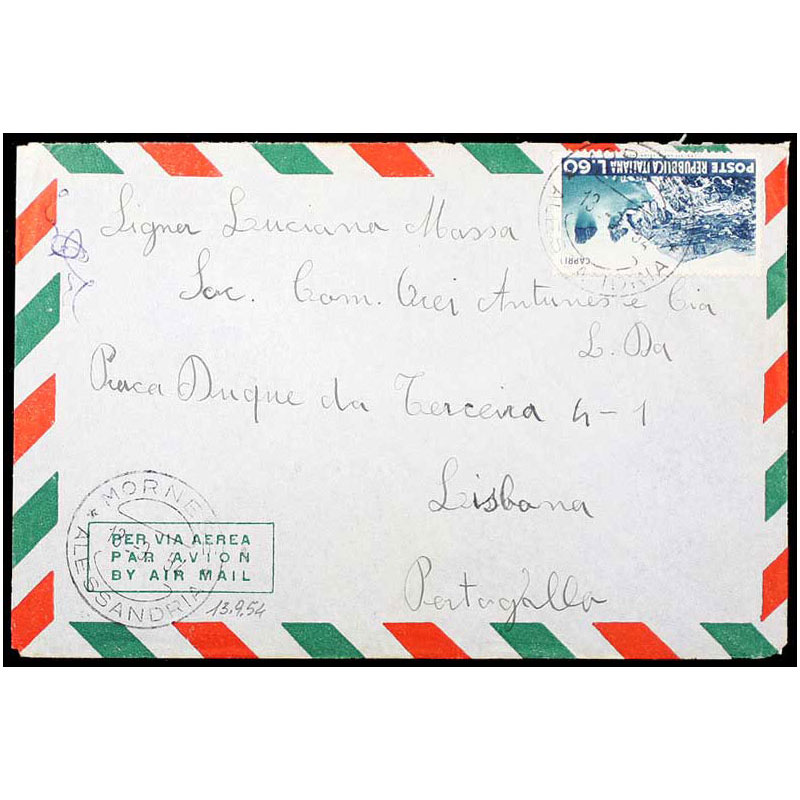 POSTE REPUBBLICA ITALIANA L.60
CAPRI
Signor Luciano Massa
Soc. Com. Crei Antunes e Cia
L. Da
Praca Duque da Terceira 4-1
Lisbona
Portogallo
* MORNE
ALESSANDRIA
PER VIA AEREA
PAR AVION
BY AIR MAIL
13.9.54